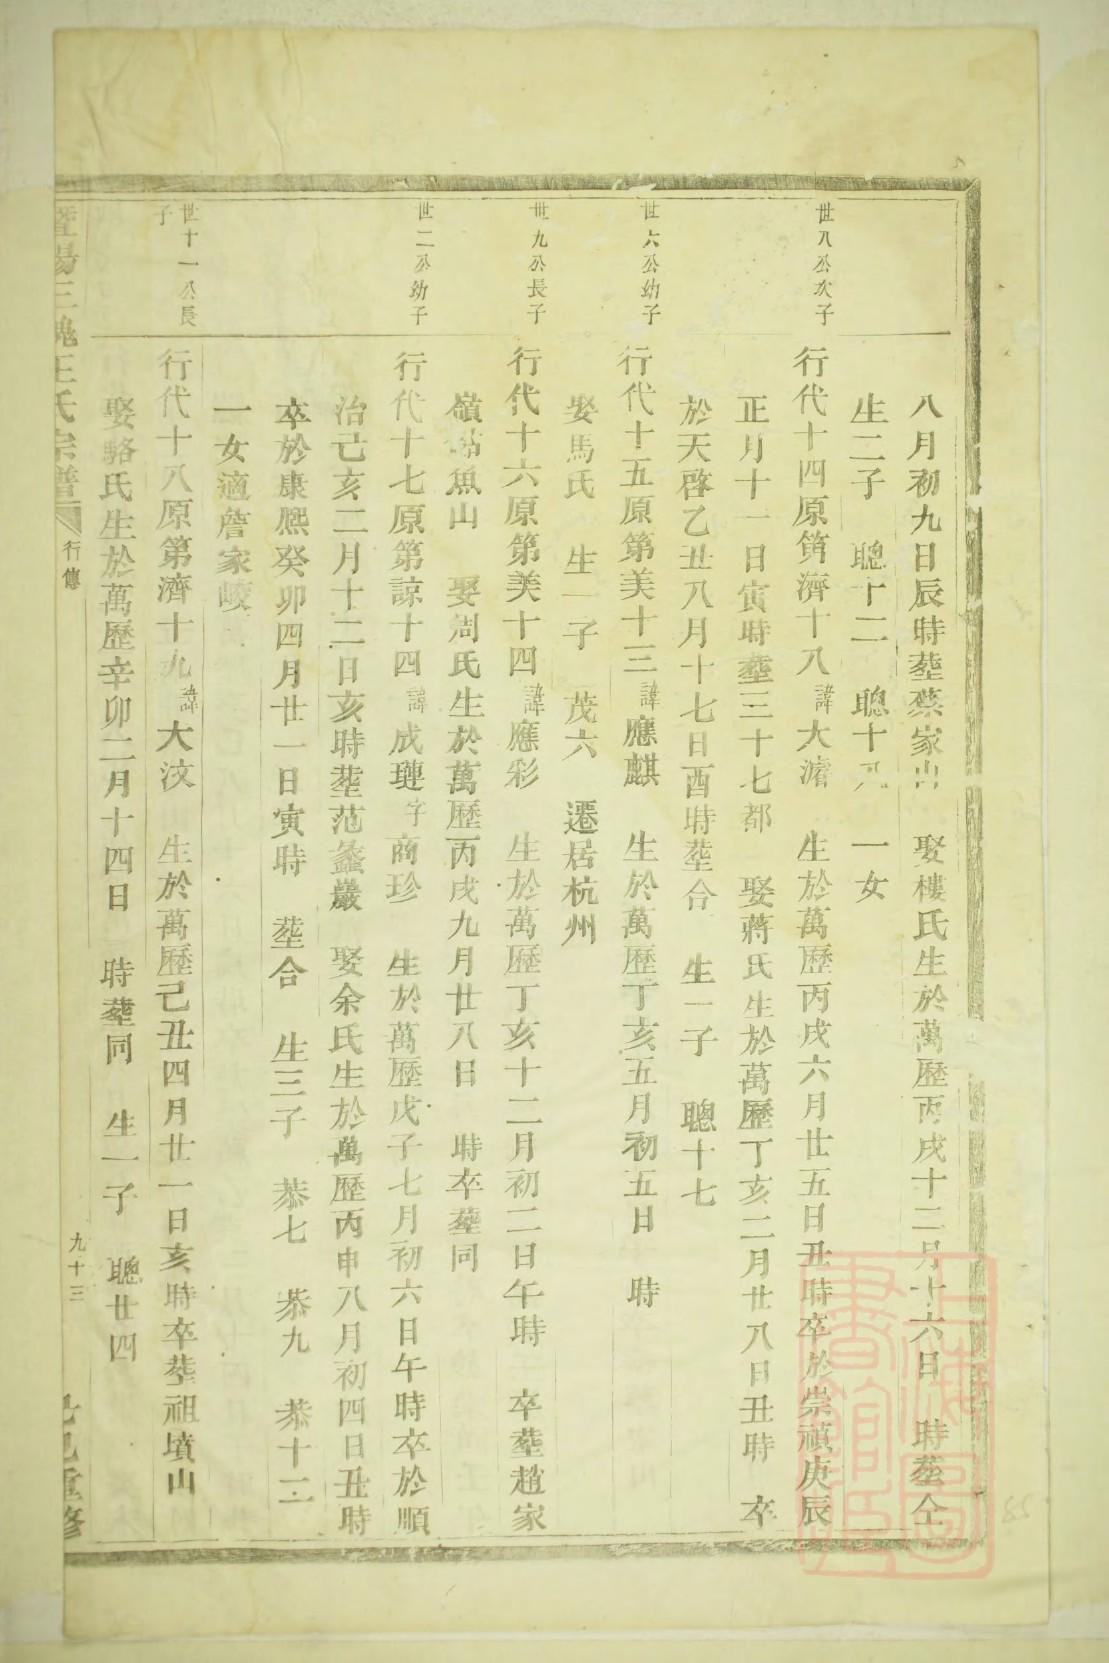 八月初九日辰時塟蔡家山 娶樓氏生於萬歷丙戌十二月十六日 時塟仝
生二子 聰十二 聰十八 一女
世八公次子
行代十四原第濟十八諱大濬 生於萬歷丙戌六月廿五日丑時卒於崇禎庚辰
正月十一日寅時塟三十七都 娶蔣氏生於萬歷丁亥二月廿八日丑時 卒
於天啓乙丑八月十七日酉時塟合 生一子 聰十七
世六公幼子
行代十五原第美十三諱應麒 生於萬歷丁亥五月初五日 時
娶馬氏 生一子 茂六 遷居杭州
世九公長子
行代十六原第美十四諱應彩 生於萬歷丁亥十二月初二日午時 卒塟趙家
嶺 魚山 娶周氏生於萬歷丙戌九月廿八日 時卒塟同
世二公幼子
行代十七原第諒十四諱成璉字商珍 生於萬歷戊子七月初六日午時卒於順
治己亥二月十二日亥時塟范蠡巖 娶余氏生於萬歷丙申八月初四日丑時
卒於康熙癸卯四月廿一日寅時 塟合 生三子 恭七 恭九 恭十二
一女適詹家峧
世十一公長子
行代十八原第濟十九諱大汶 生於萬歷己丑四月廿一日亥時卒塟祖墳山
娶駱氏生於萬歷辛卯二月十四日 時塟同 生一子 聰廿四
暨陽三槐王氏宗譜 行傳 九十三 己巳重修
上海圖書館藏